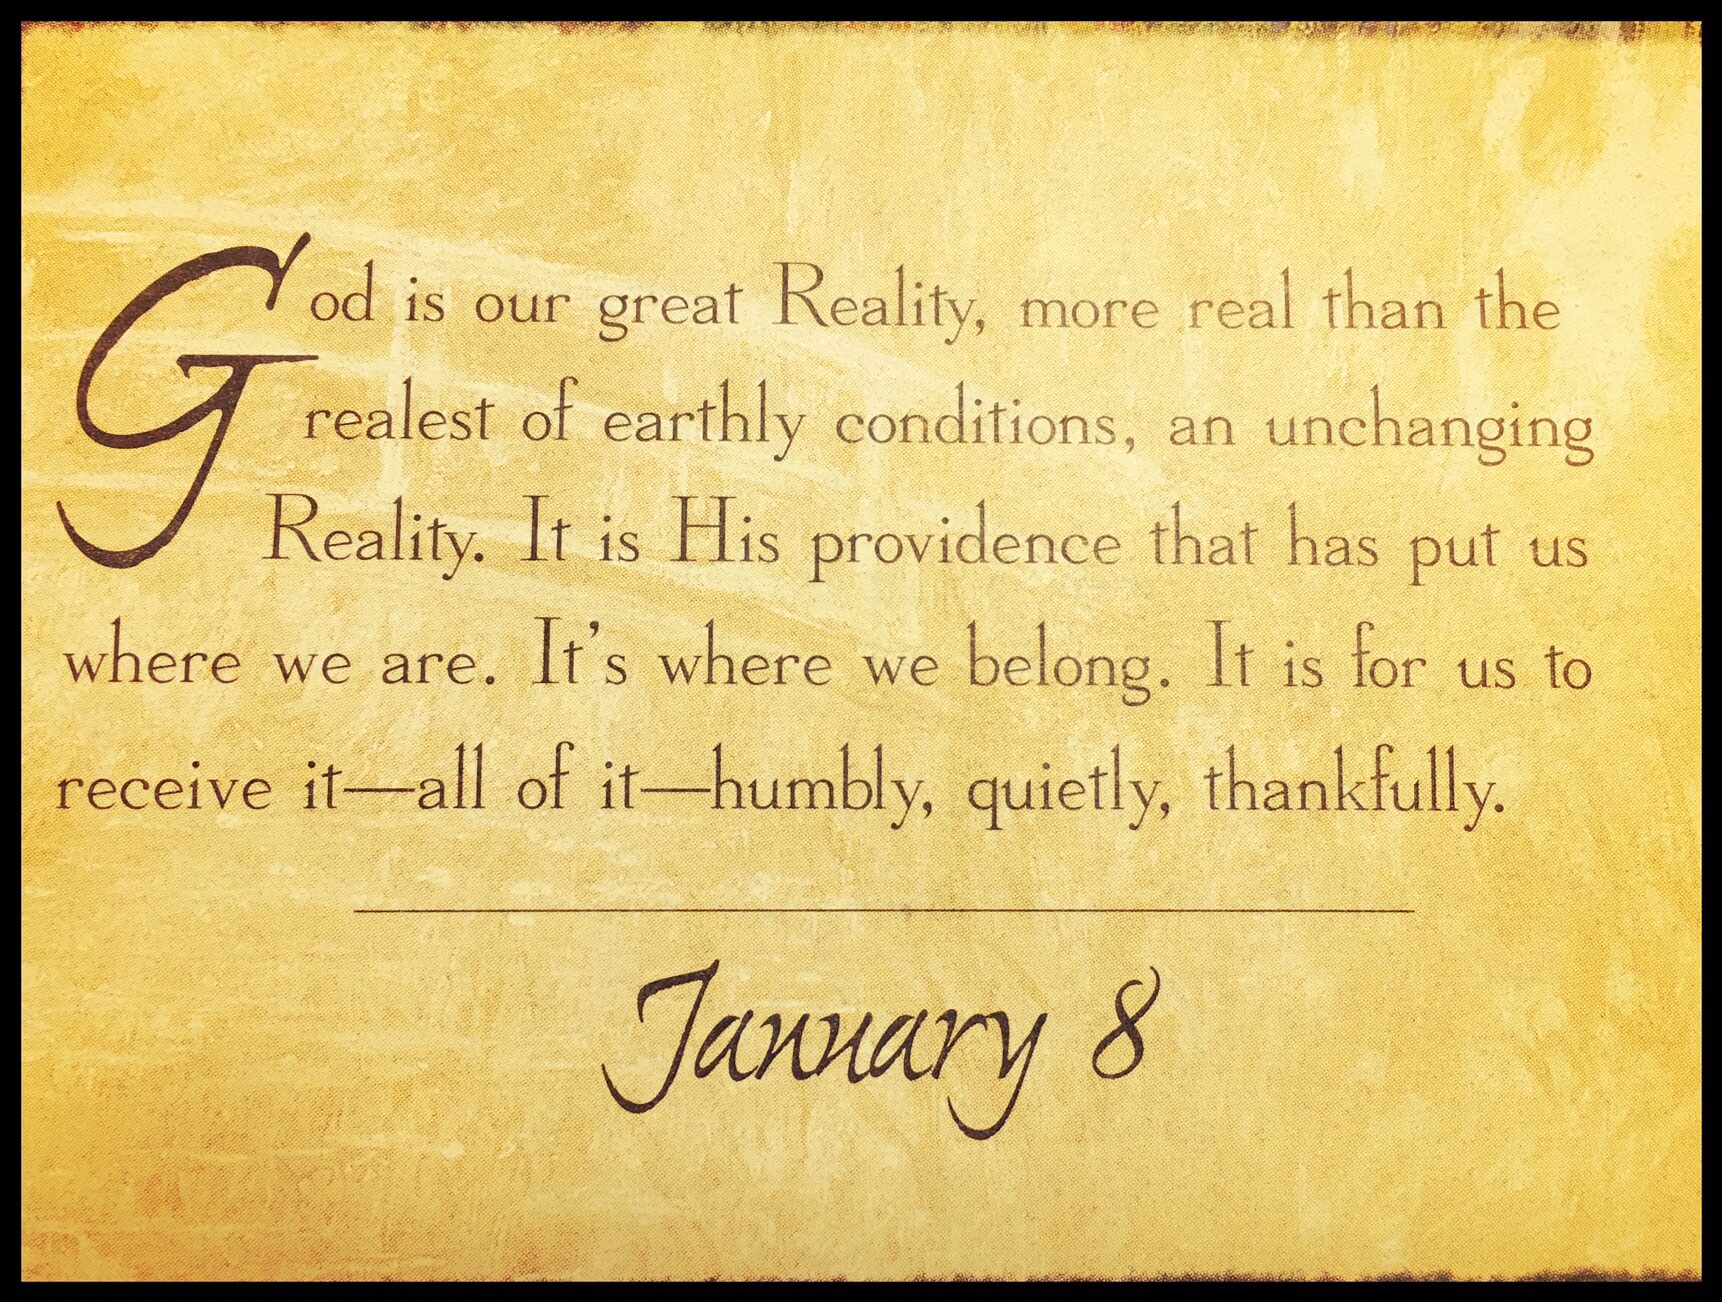 God is our great Reality, more real than the
realest of earthly conditions, an unchanging
Reality. It is His providence that has put us
where we are. It's where we belong. It is for us to
receive it—all of it—humbly, quietly, thankfully.
January 8